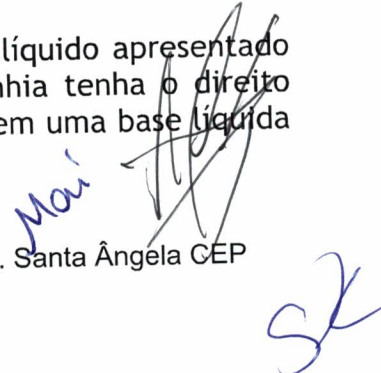 líquido apresentado
nhia tenha o direito
em uma base líquida
. Santa Ângela CEP